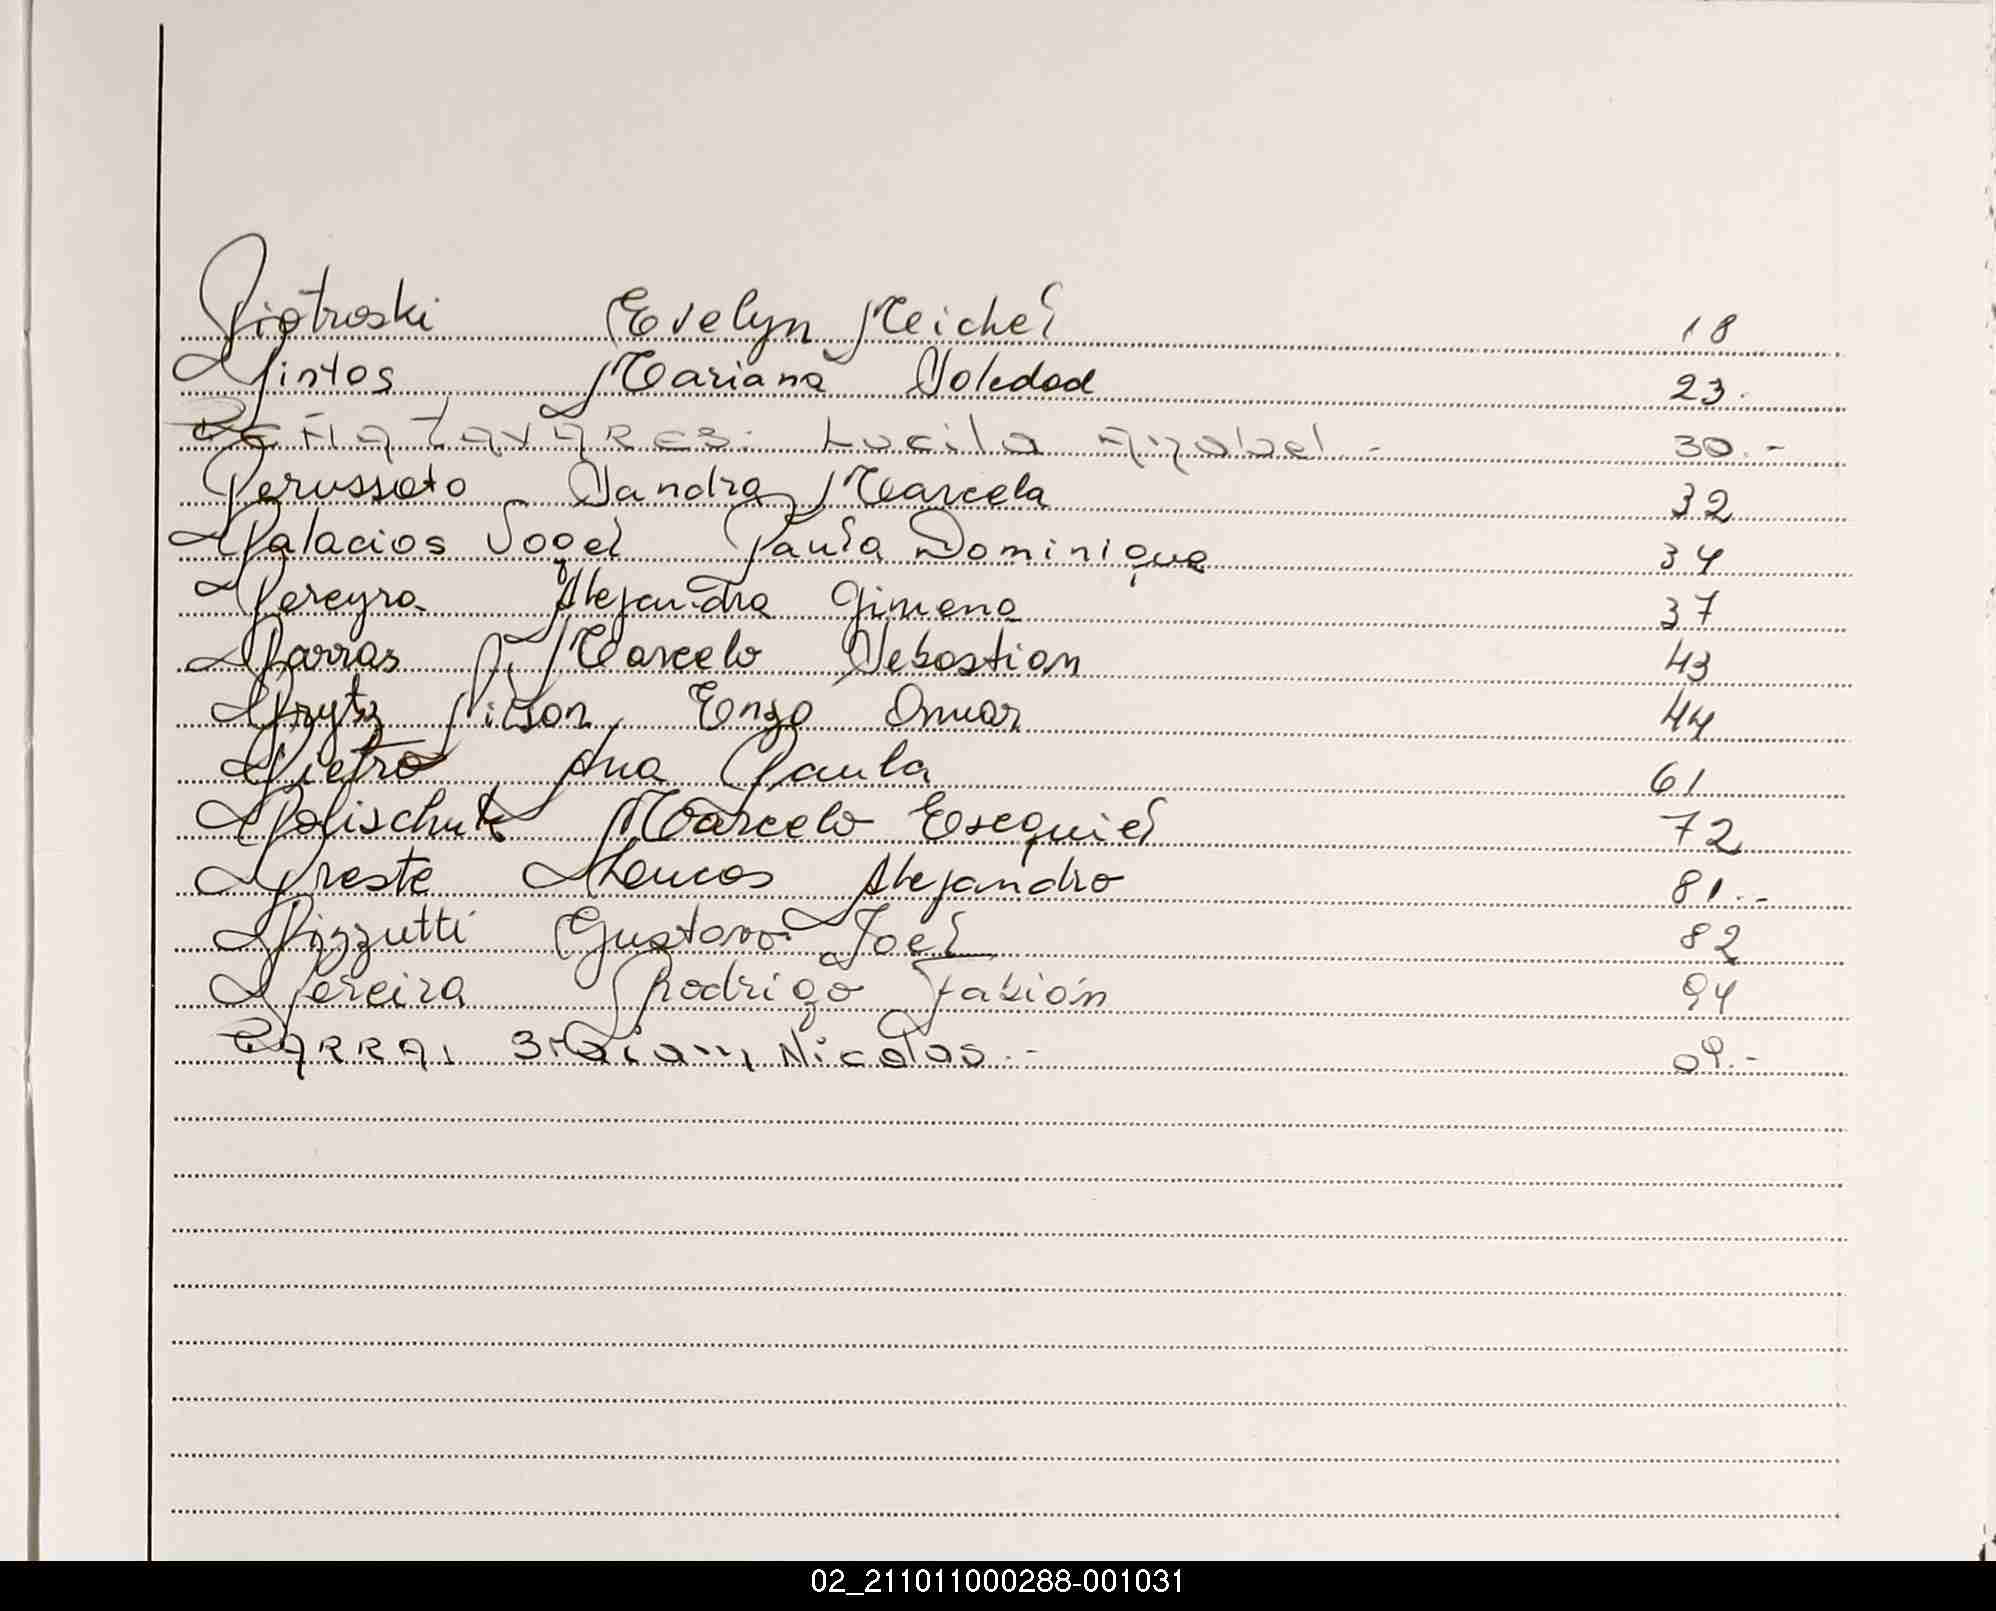 Piotroski Evelyn Meichel 18
Pintos Mariana Soledad 23.
PEÑA TAVARES. Lucila 30.-
Perussato Sandra Marcela 32
Palacios Vogel Paula Dominique 34
Pereyra Alejandra Gimena 37
Parras Marcelo Sebastian 43
Prytz Nilson, Enzo Omar 44
Pietro Ana Paula 61
Polischuk Marcelo Esequiel 72
Preste Leucas Alejandro 81.-
Pizzutti Gustavo Joel 82
Pereira Rodrigo Fabián 94
Nicolas.- 09.-
02_211011000288-001031